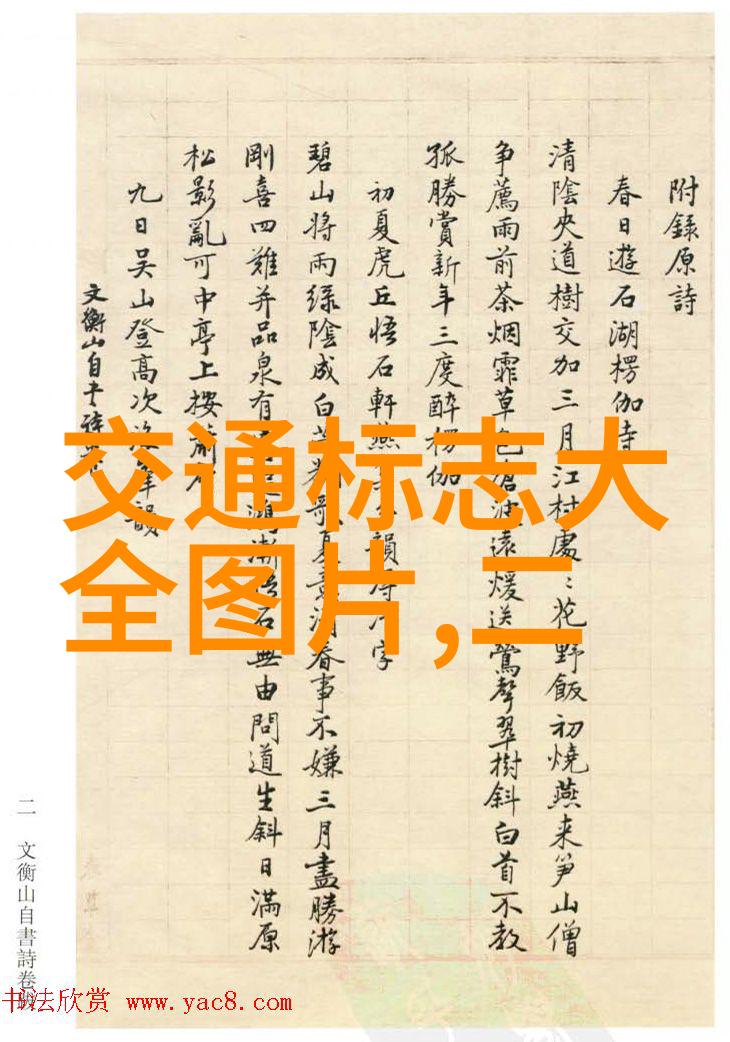 附錄原詩
春日遊石湖楞伽寺
清陰夾道樹交加三月江村處〻花野飯初燒燕来笋山僧
争薦雨前茶烟霏草色滄波遠煖送鶯聲翠樹斜白首不教
孤勝賞新年三度醉楞伽
初夏虎丘悟石軒燕
碧山将雨緑陰成白
剛喜四難并品泉有
松影亂可中亭上
九日吳山登高次
文衡山自書詩卷
歌夏景清春事不嫌三月盡勝游
石無由問道生斜日滿原
韻
字
交通标志大
全图片,二
二 文衡山自書詩卷跋
书法欣赏 www.yac8.com